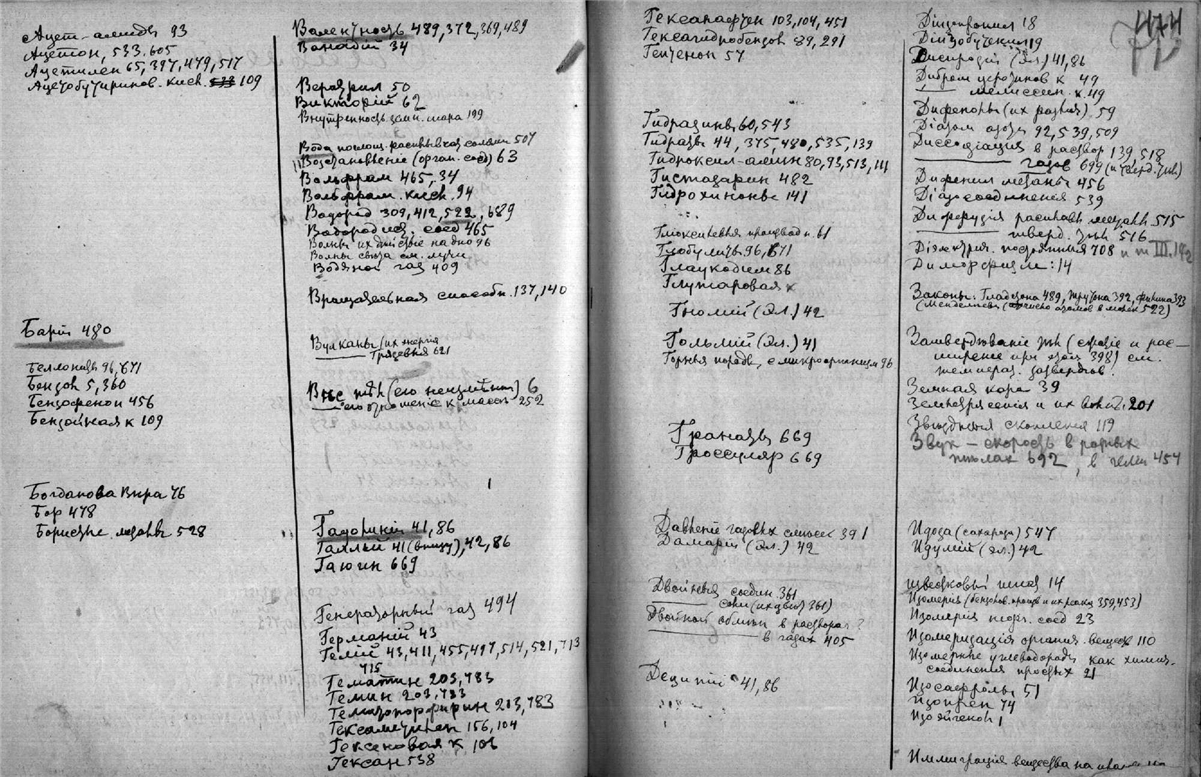 Ацет-амидъ 93
Ацетон, 533.605
Ацетилен 65, 397, 479, 517
Ацетобутиринов. кисл. 109
Барій 480
Беллонитъ 96, 671
Бензол 5, 360
Бензофенон 456
Бензойная к 109
Богданова Вира 76
Бор 478
528
Валентность 489, 372, 369, 489
Ванадій 34
Вератрил 50
Викторій 62
Внутренность земн. шара 199
Вода 507
Возстановленіе (орган. соед) 63
Вольфрам 465, 34
Вольфрам. кисл. 94
Водород 309, 412, 522, 689
Водородист. соед 465
Волны их дѣйствіе на дно 96
Волны свѣта см. лучи
Водяной газ 409
Вращательная способн. 137, 140
Вулканы (их энергія
Грязевые 621
Вѣс тѣл (его неизмѣнн) 6
его отношеніе к массѣ 252
Гадолиній 41, 86
Галлій 41 (внизу), 42, 86
Гаюин 669
Генераторный газ 494
Германій 43
Гелій 43, 411, 455, 497, 514, 521, 713
715
Гематин 203, 783
Гемин 203, 783
Гематопорфирин 203, 783
Гексаметилен 156, 104
Гексеновая к 108
Гексан 538
Гексанафтен 103, 104, 451
Гексагидробензол 89, 291
Гептенон 57
Гидразинъ 60, 543
Гидраты 44, 375, 480, 535, 139
Гидроксил-амин 80, 93, 513, 111
Гистазарин 482
Гидрохинонъ 141
производн. 61
Глобулитъ 96, 671
Глаукодим 86
Глутаровая к
(Эл.) 42
Гольмій (Эл.) 41
Горныя породы, с микроорганизм 96
Гранатъ 669
Гроссуляр 669
Давленіе газовых смѣсей 391
Дамарій (эл.) 42
Двойныя соедин 361
соли (их двой 361)
Двойной обмѣн в растворах ?
в газах 405
Деципій 41, 86
474
18
19
Диспрозій (Эл) 41, 86
к 49
к 119
Дифенолы (их развит). 59
Діазот 92, 539, 509
Диссоціація в раствор 139, 518
газов 699 (и тверд. тѣл)
Дифенил метанъ 456
Діазосоединенія 539
Диффузія расплавл. металлъ 515
тверд. тѣл 516
Діэлектрич. постоянныя 708 и т III. 192
Диморфизм: 14
Законы: Гладстона 489, Трутона 392, 393
(Менделѣева 522)
Затвердѣваніе тѣл (сжатіе и рас-
ширеніе при этом 398) см.
температ. затвердѣв.
Земная кора 39
Землетрясенія и их 201
Звѣздныя скопленія 119
Звук – скорость в разных
тѣлах 692, в гелии 454
Идоза (сахароза) 547
Идумій (эл.) 42
Известковый шпат 14
Изомерія (бензолов. произв и их реакц 359, 453)
Изомерія неорг. соед 23
Изомеризація органич. веществ 110
Изомерные углеводороды как химич.
соединения простых 21
Изосафролъ 51
Изопрен 74
Изоэйгенол 1
Иммиграція вещества на